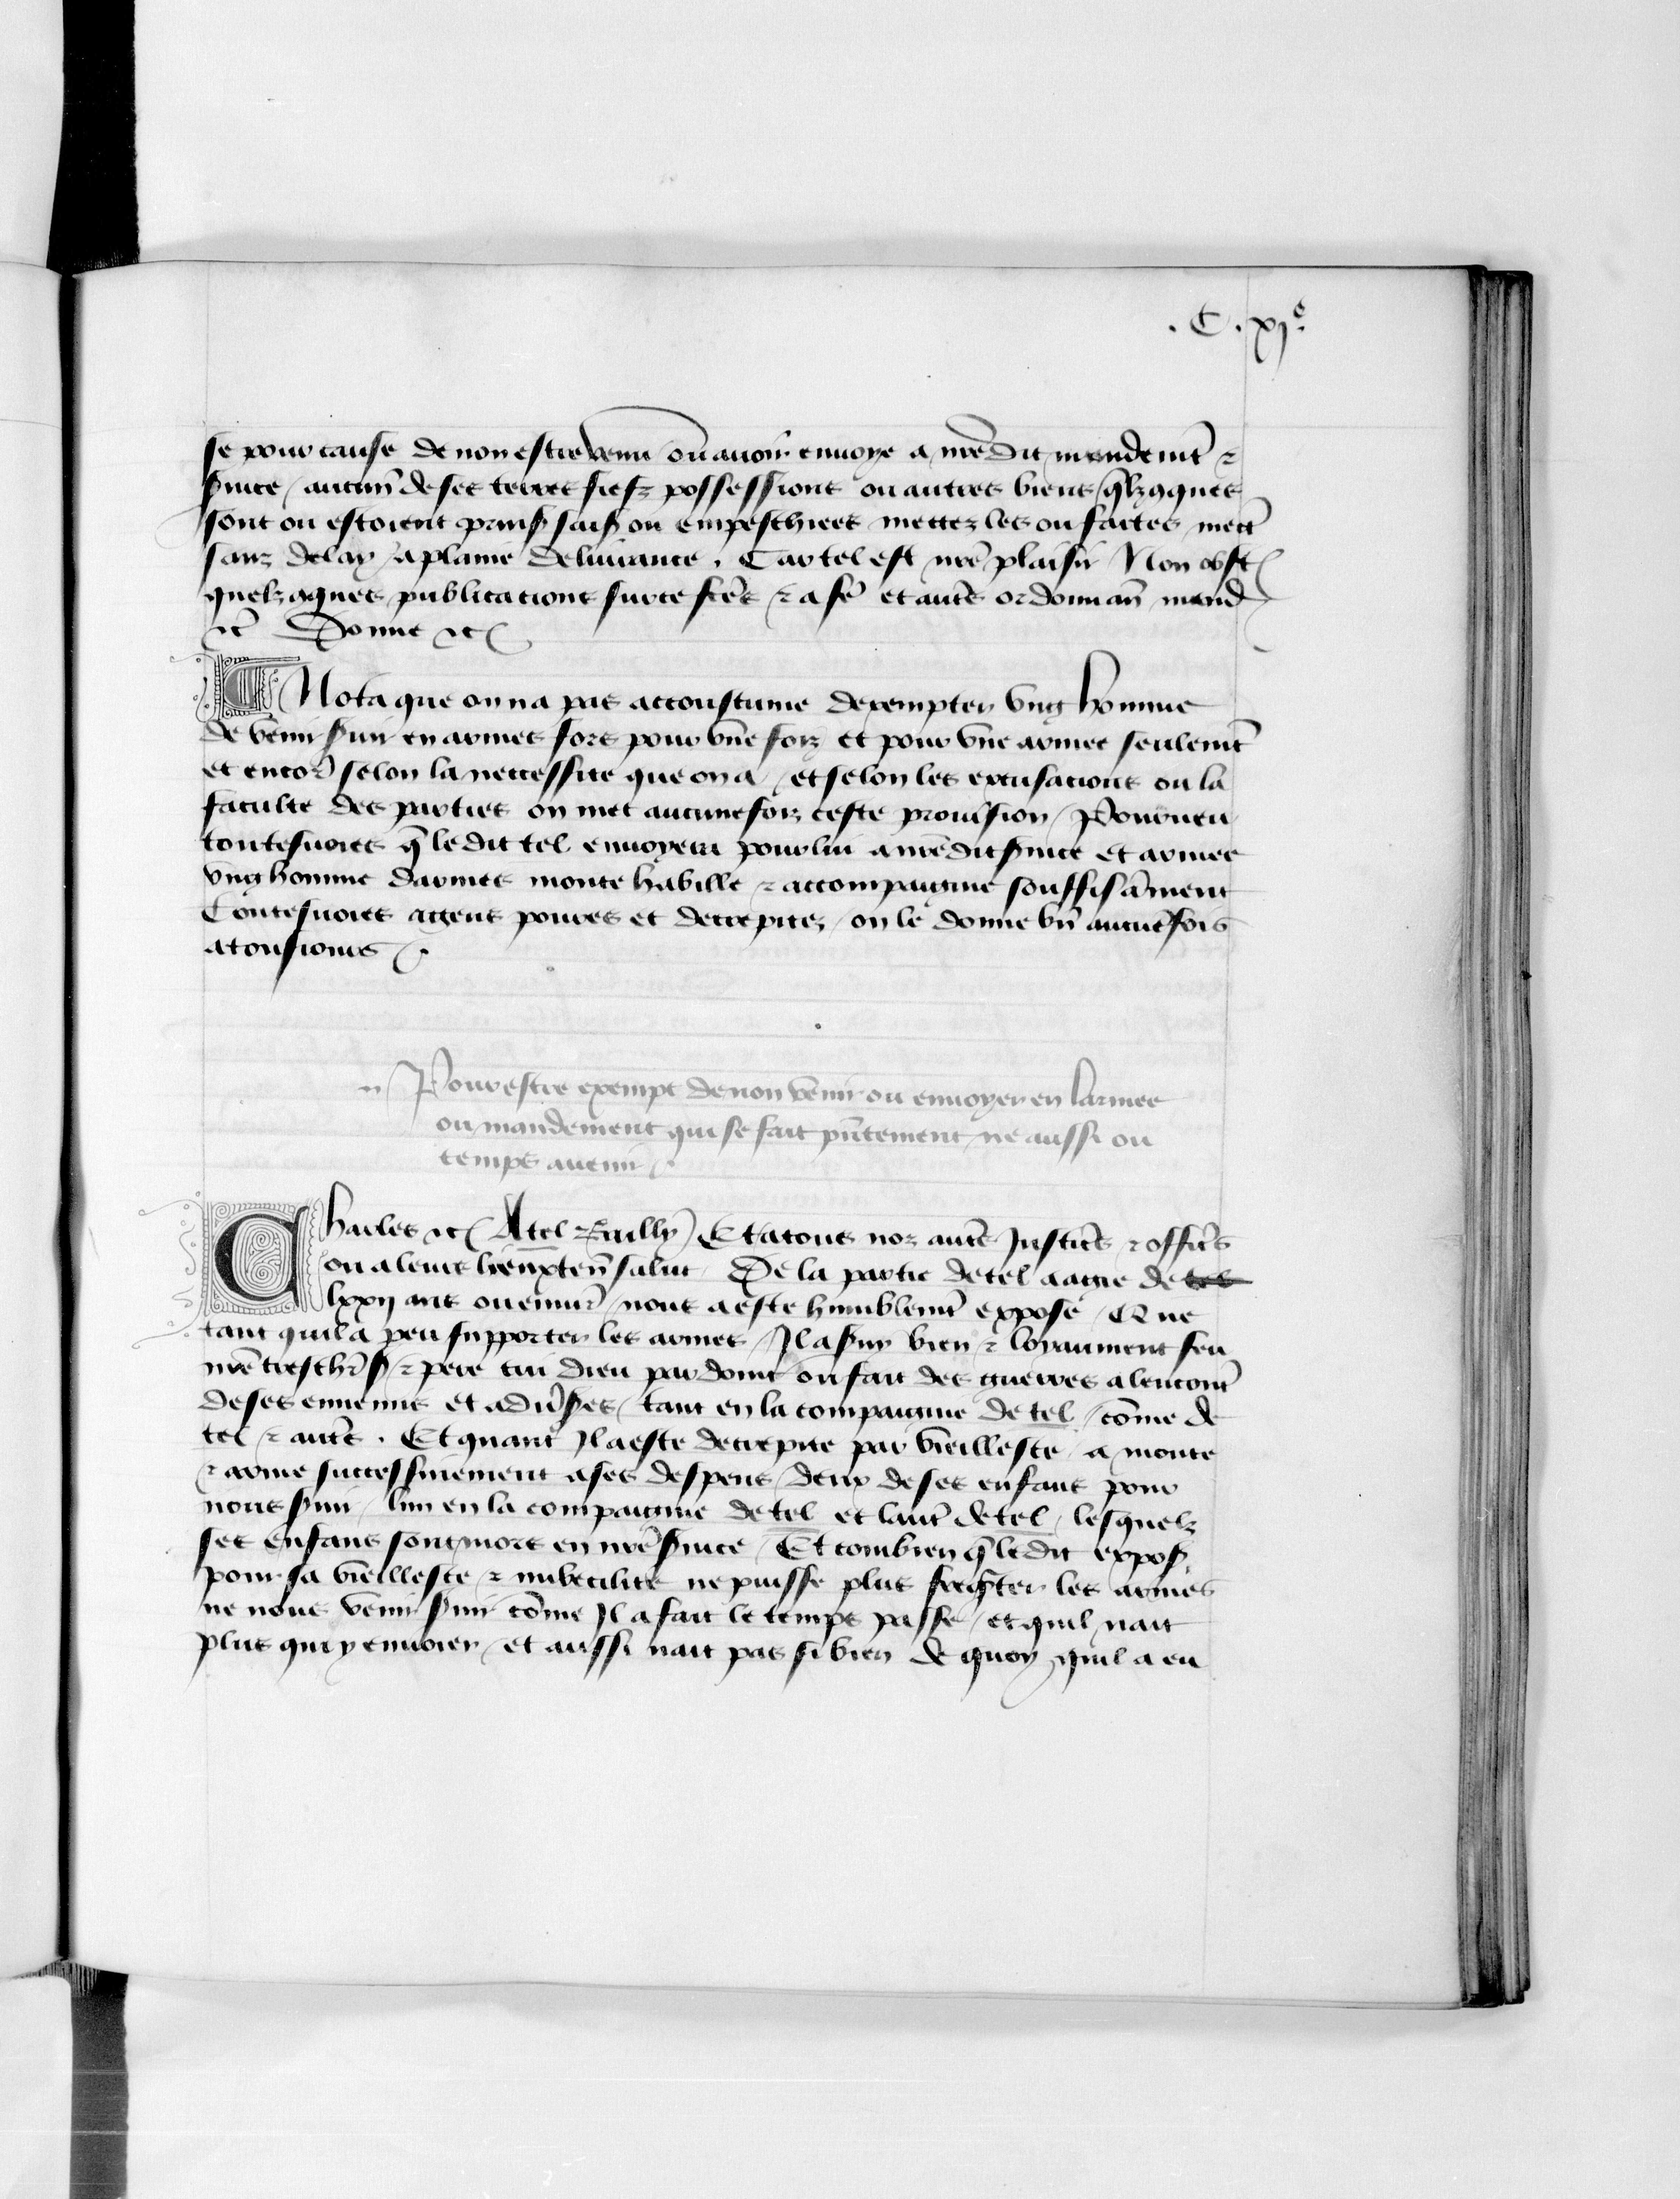 . C . xjᵉ.
se pour cause de non estre venu ou auoir enuoye a nr̄e dit mandemt̄ ⁊
s̄uice / aucun̄ de ses terres fiefz possessions ou autres biens / q̄lzq̄ques
sont ou estoient prins sais ou empeschiees mettez les ou faites mett̄
sanz delay / a plaine deliurance . Car tel est nr̄e plaisir Non obst̄
quelzq̄ques publicacions sur ce fc̄es ⁊ a fē et autr̄es ordonnan̄ mand
⁊c̄ Donne ⁊c̄
Nota que on na pas accoustume dexempter vng homme
de venir s̄uir en armes fors pour vne foiz et pour vne armee seulemt̄
et encor̄ selon la neccessite que on a / et selon les excusacions ou la
faculte des parties on met aucunesfoiz ceste prouision / Pourueu
toutesuoies q̄ le dit tel enuoyera pour lui a nr̄e dit s̄uice et armee
vng homme darmes monte habille ⁊ accompaigne souffisām̄ent
Toutesuoies a gens poures et decrepitez / on le donne bn̄ aucune̅sfois
a tousiours .
Pour estre exempt de non venir ou enuoyer en larmee
ou mandement qui se fait pn̄tement ne aussi ou
temps auenir .
Charles ⁊c̄ A tel Bailly / Et a tous noz autr̄es Justic̄es ⁊ offic̄es
ou a leurs lieuxten̄ salut / De la partie de tel aagie de tel
lxxij ans ou enuir̄ / nous a este humblemt̄ expose / Que
tant quil a peu supporter les armes / Il a s̄uy bien ⁊ loyaument feu
nr̄e treschr̄ s̄ ⁊ pere cui dieu pardoint ou fait des guerres a lencontr̄
de ses ennemis et adu̅s̄es / tant en la compaignie de tel / cōme de
tel ⁊ autr̄es . Et quant Il a este decrepite par vieilleste / a monte
⁊ arme successiuement a ses despens / deux de ses enfans pour
nous s̄uir / lun en la compaignie de tel et lautr̄ de tel / lesquelz
ses enfans sont mors en nr̄e s̄uice / Et combien q̄ le dit expos̄
pour sa vieilleste ⁊ imbecilite ne puisse plus freq̄nter les armes
ne nous venir s̄uir cōme Il a fait le temps passe / et quil nait
plus qui y enuoier / et aussi nait pas si bien de quoy quil a eu